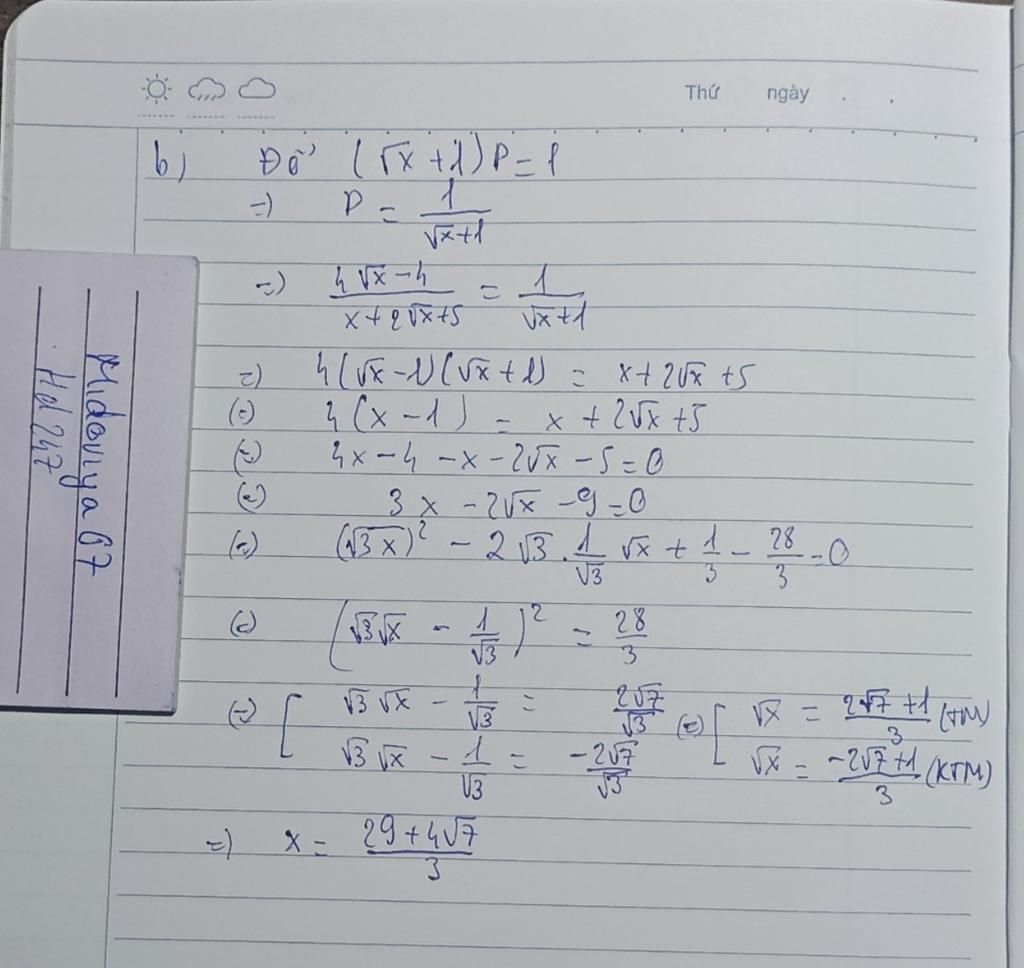 Thứ ngày . .
b) Để (√x + 1) P = 1
=> P = 1/(√x+1)
=> (4√x - 4)/(x + 2√x + 5) = 1/(√x+1)
=> 4(√x - 1)(√x + 1) = x + 2√x + 5
(=) 4(x - 1) = x + 2√x + 5
(=) 4x - 4 - x - 2√x - 5 = 0
(=) 3x - 2√x - 9 = 0
(=) (√3x)² - 2√3 . 1/√3 √x + 1/3 - 28/3 = 0
(=) (√3√x - 1/√3)² = 28/3
(=) [ √3√x - 1/√3 = 2√7/√3 (=) [ √x = (2√7+1)/3 (TM)
√3√x - 1/√3 = -2√7/√3 √x = (-2√7+1)/3 (KTM)
=> x = (29+4√7)/3
Midoriya67
Hd247